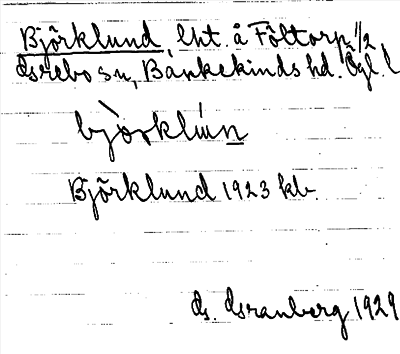 Björklund, lht. å Föltorp 1/2
Asrebo sn, Bankekinds hd. Ögl. l
bjò̀rklún
Björklund 1923 kb.
As. Asranberg 1929